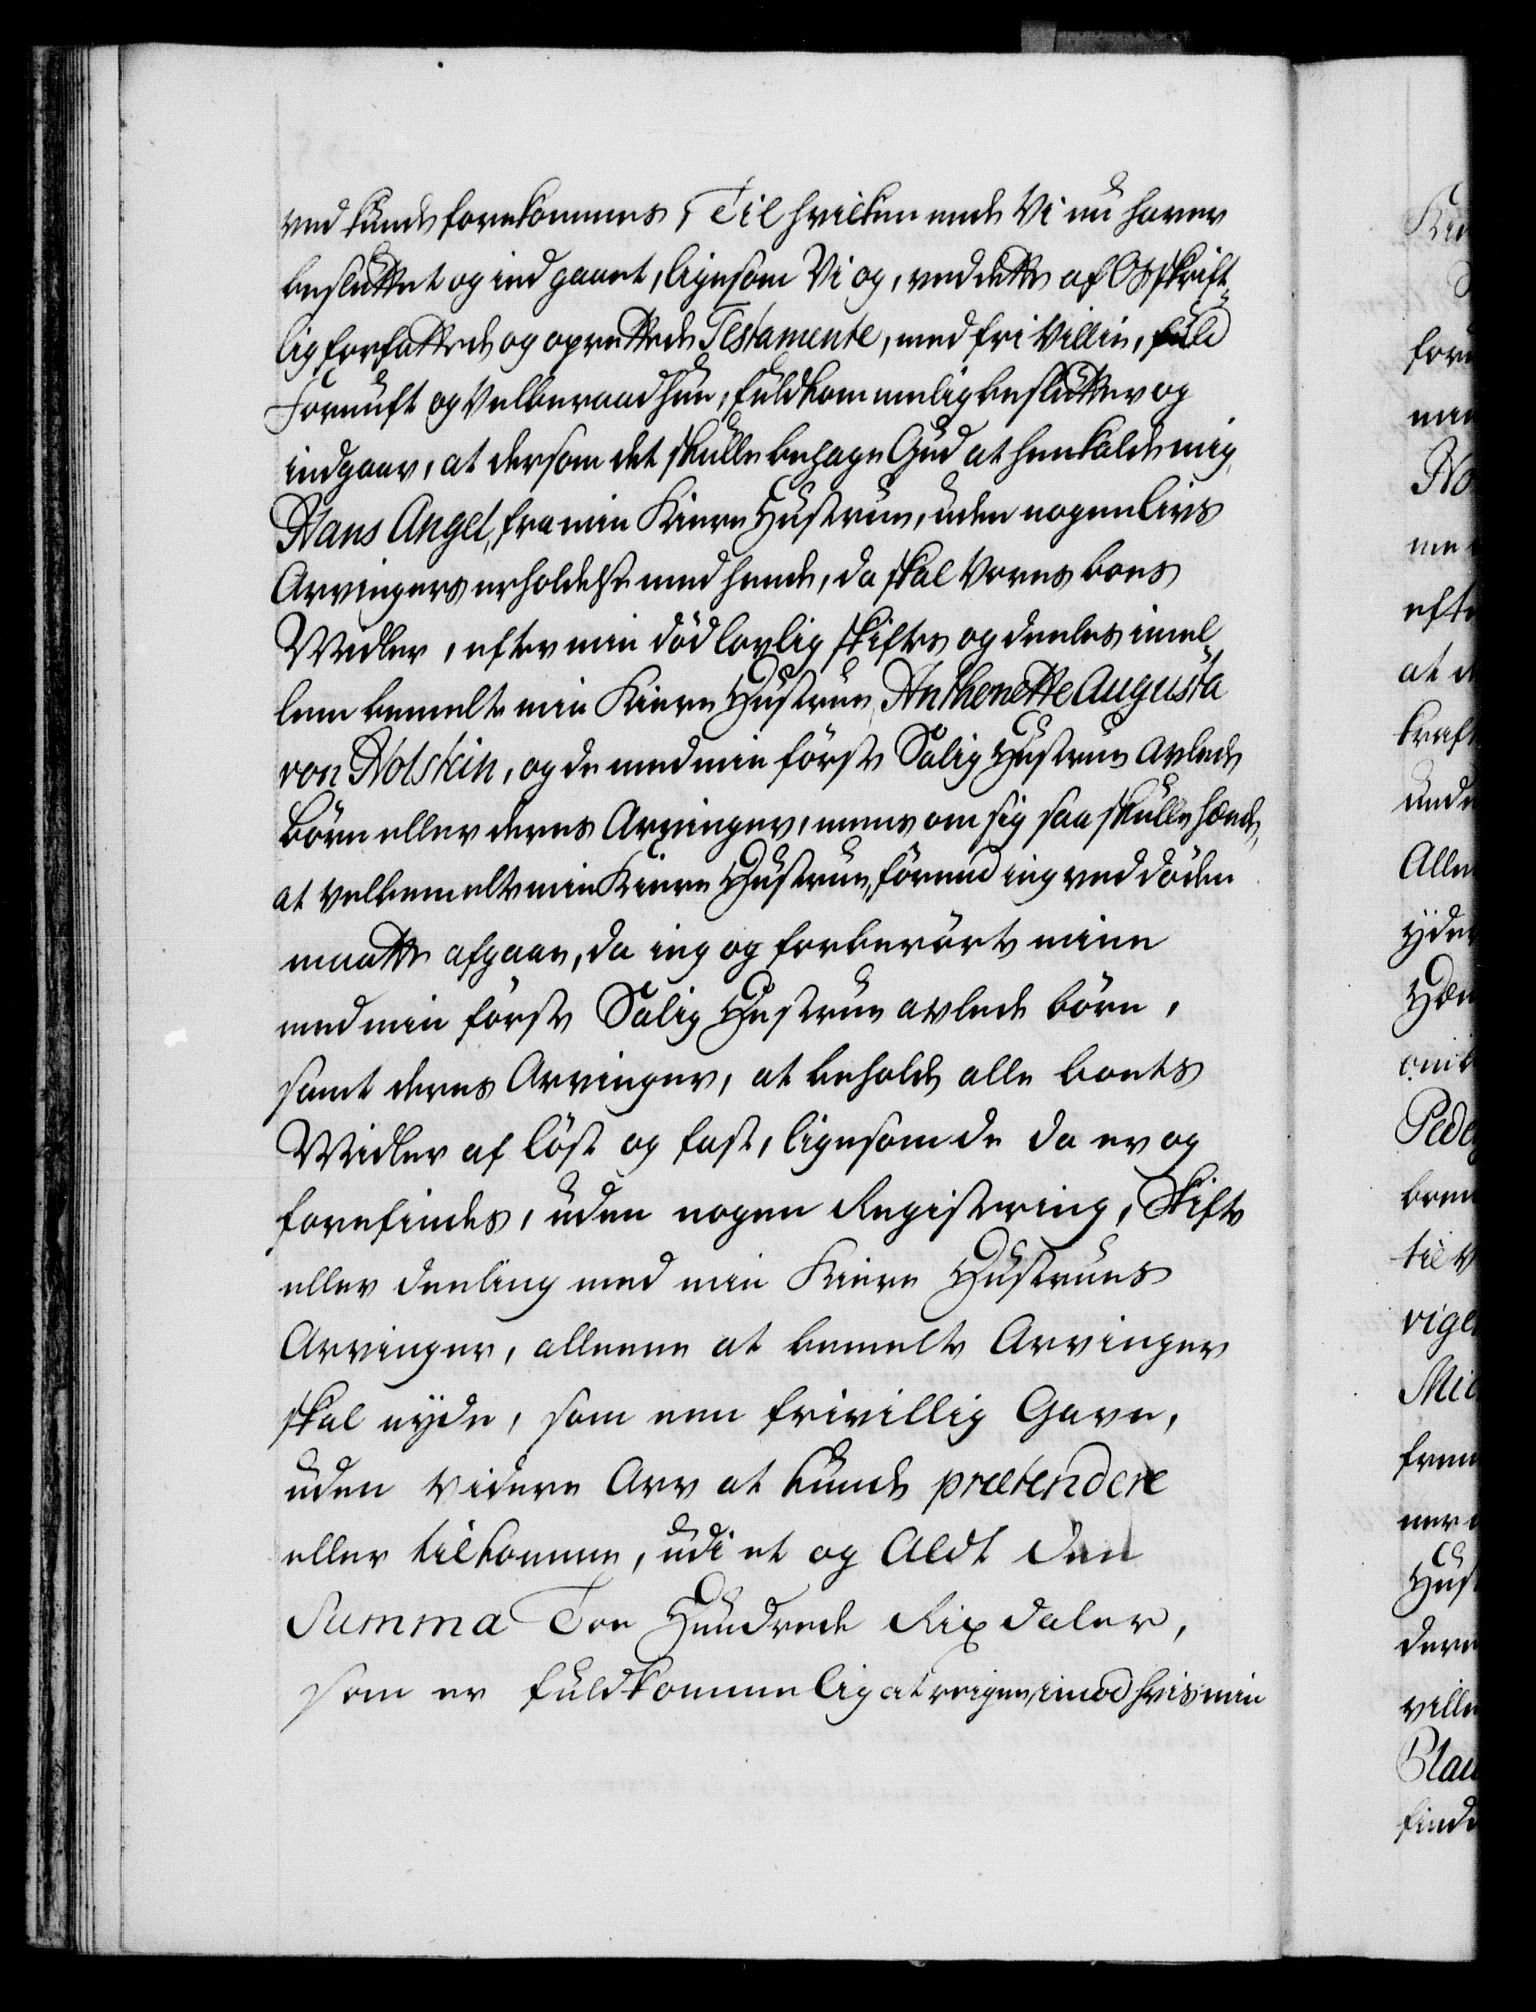 ved kunde forekommes, Til hvilken ende Vi nu haver
besluttet og indgaaet, ligesom Vi og, ved dette af Os skrift-
lig forfattede og oprettede Testamente, med fri Villie, fuld
Fornuft og Velberaad hue, fuldkommelig beslutter og
indgaar, at dersom det skulle behage Gud at henkalde mig
Hans Angel, fra min Kiere Hustrue, uden nogen livs
Arvingers erholdelse med hende, da skal Vores boes
Midler, efter min død lovlig skiftes og deeles imel-
lem bemelte min Kiere Hustrue Anthonette Augusta
von Holstein, og de med min første Salig Hustrue avlede
børn eller deres Arvinger, mens om sig saa skulle hænde,
at velbemelte min Kiere Hustrue, førend ieg ved døden
maatte afgaae, da ieg og forberørte mine
med min første Salig Hustrue avlede børn,
samt deres Arvinger, at beholde alle boets
Midler af løst og fast, ligesom de da er og
forefindes, uden nogen Registering, Skifte
eller deeling med min Kiere Hustrues
Arvinger, alleene at bemelte Arvinger
skal nyde, som een frivillig Gave,
uden videre Arv at kunde prætendere
eller tilkomme, udi et og Aldt den
Summa Toe Hundrede Rixdaler,
som er fuldkommelig at reigne imod hvis min